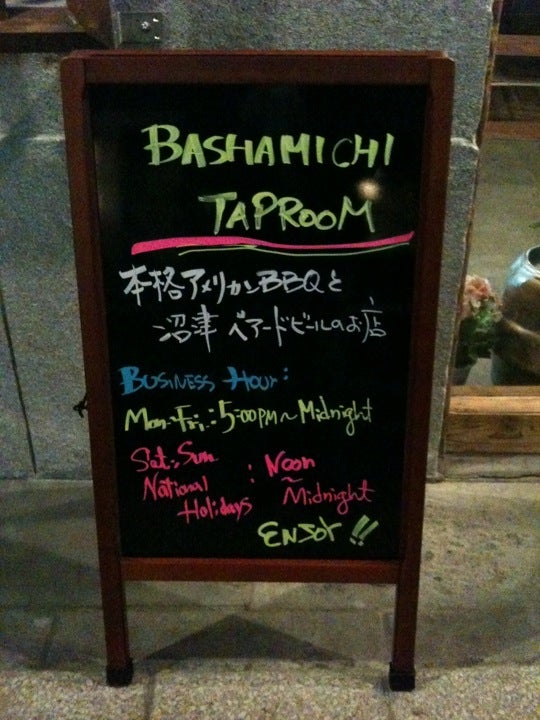 BASHAMICHI
TAPROOM
本格アメリカンBBQと
沼津ベアードビールのお店
BUSINESS HOUR:
Mon.-Fri.: 5:00PM~Midnight
Sat., Sun : Noon
National ~
Holidays Midnight
ENJOY!!